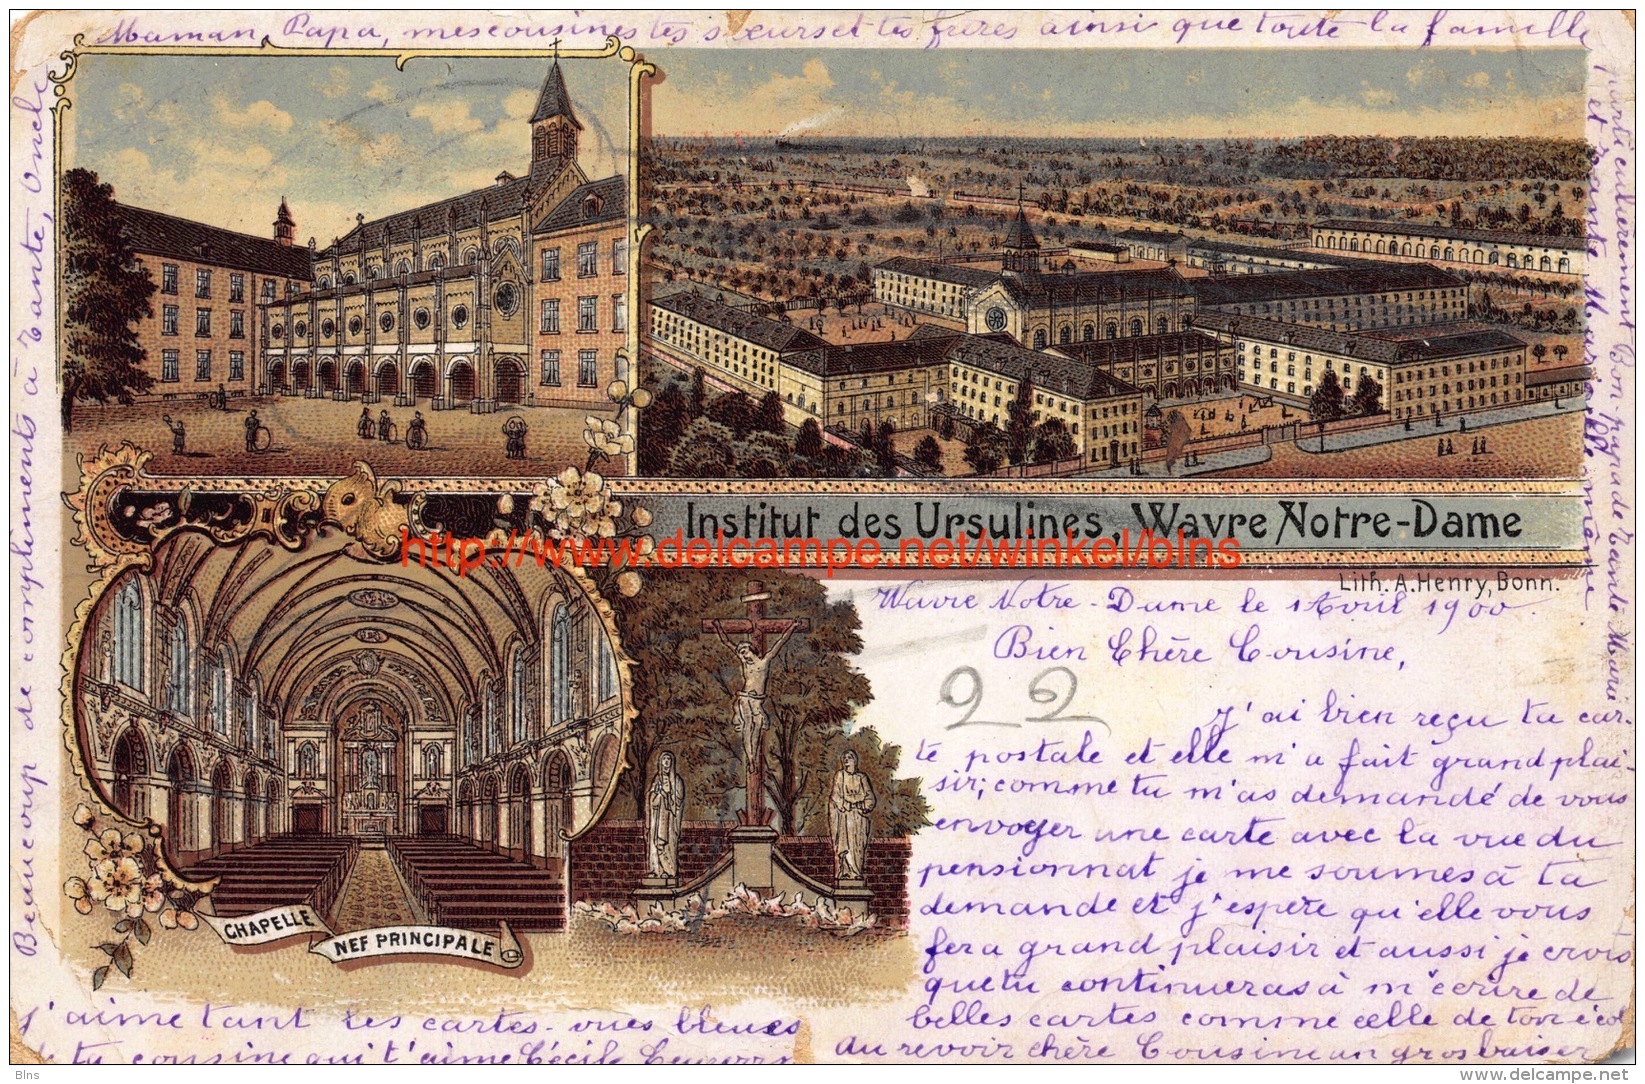 Maman, Papa, mes cousines tes sœurs et tes frères ainsi que toute la famille
particulièrement Bon-papa de tante Marie
et Tante Marie
même
Beaucoup de compliments à Tante, Oncle
Institut des Ursulines, Wavre Notre-Dame
http://www.delcampe.net/winkel/blns
Lith. A. Henry, Bonn.
Wavre Notre-Dame le 1 Avril 1900.
Bien Chère Cousine,
22
J'ai bien reçu ta car-
te postale et elle m'a fait grand plai-
sir; comme tu m'as demandé de vous
envoyer une carte avec la vue du
pensionnat je me soumes à ta
demande et j'espère qu'elle vous
fera grand plaisir et aussi je crois
que tu continueras à m'écrire de
belles cartes comme celle de ton écol
Au revoir chère Cousine un gros baiser
CHAPELLE
NEF PRINCIPALE
J'aime tant les cartes-vues bleues
de ta cousine qui t'aime Cécile
Blns
www.delcampe.net